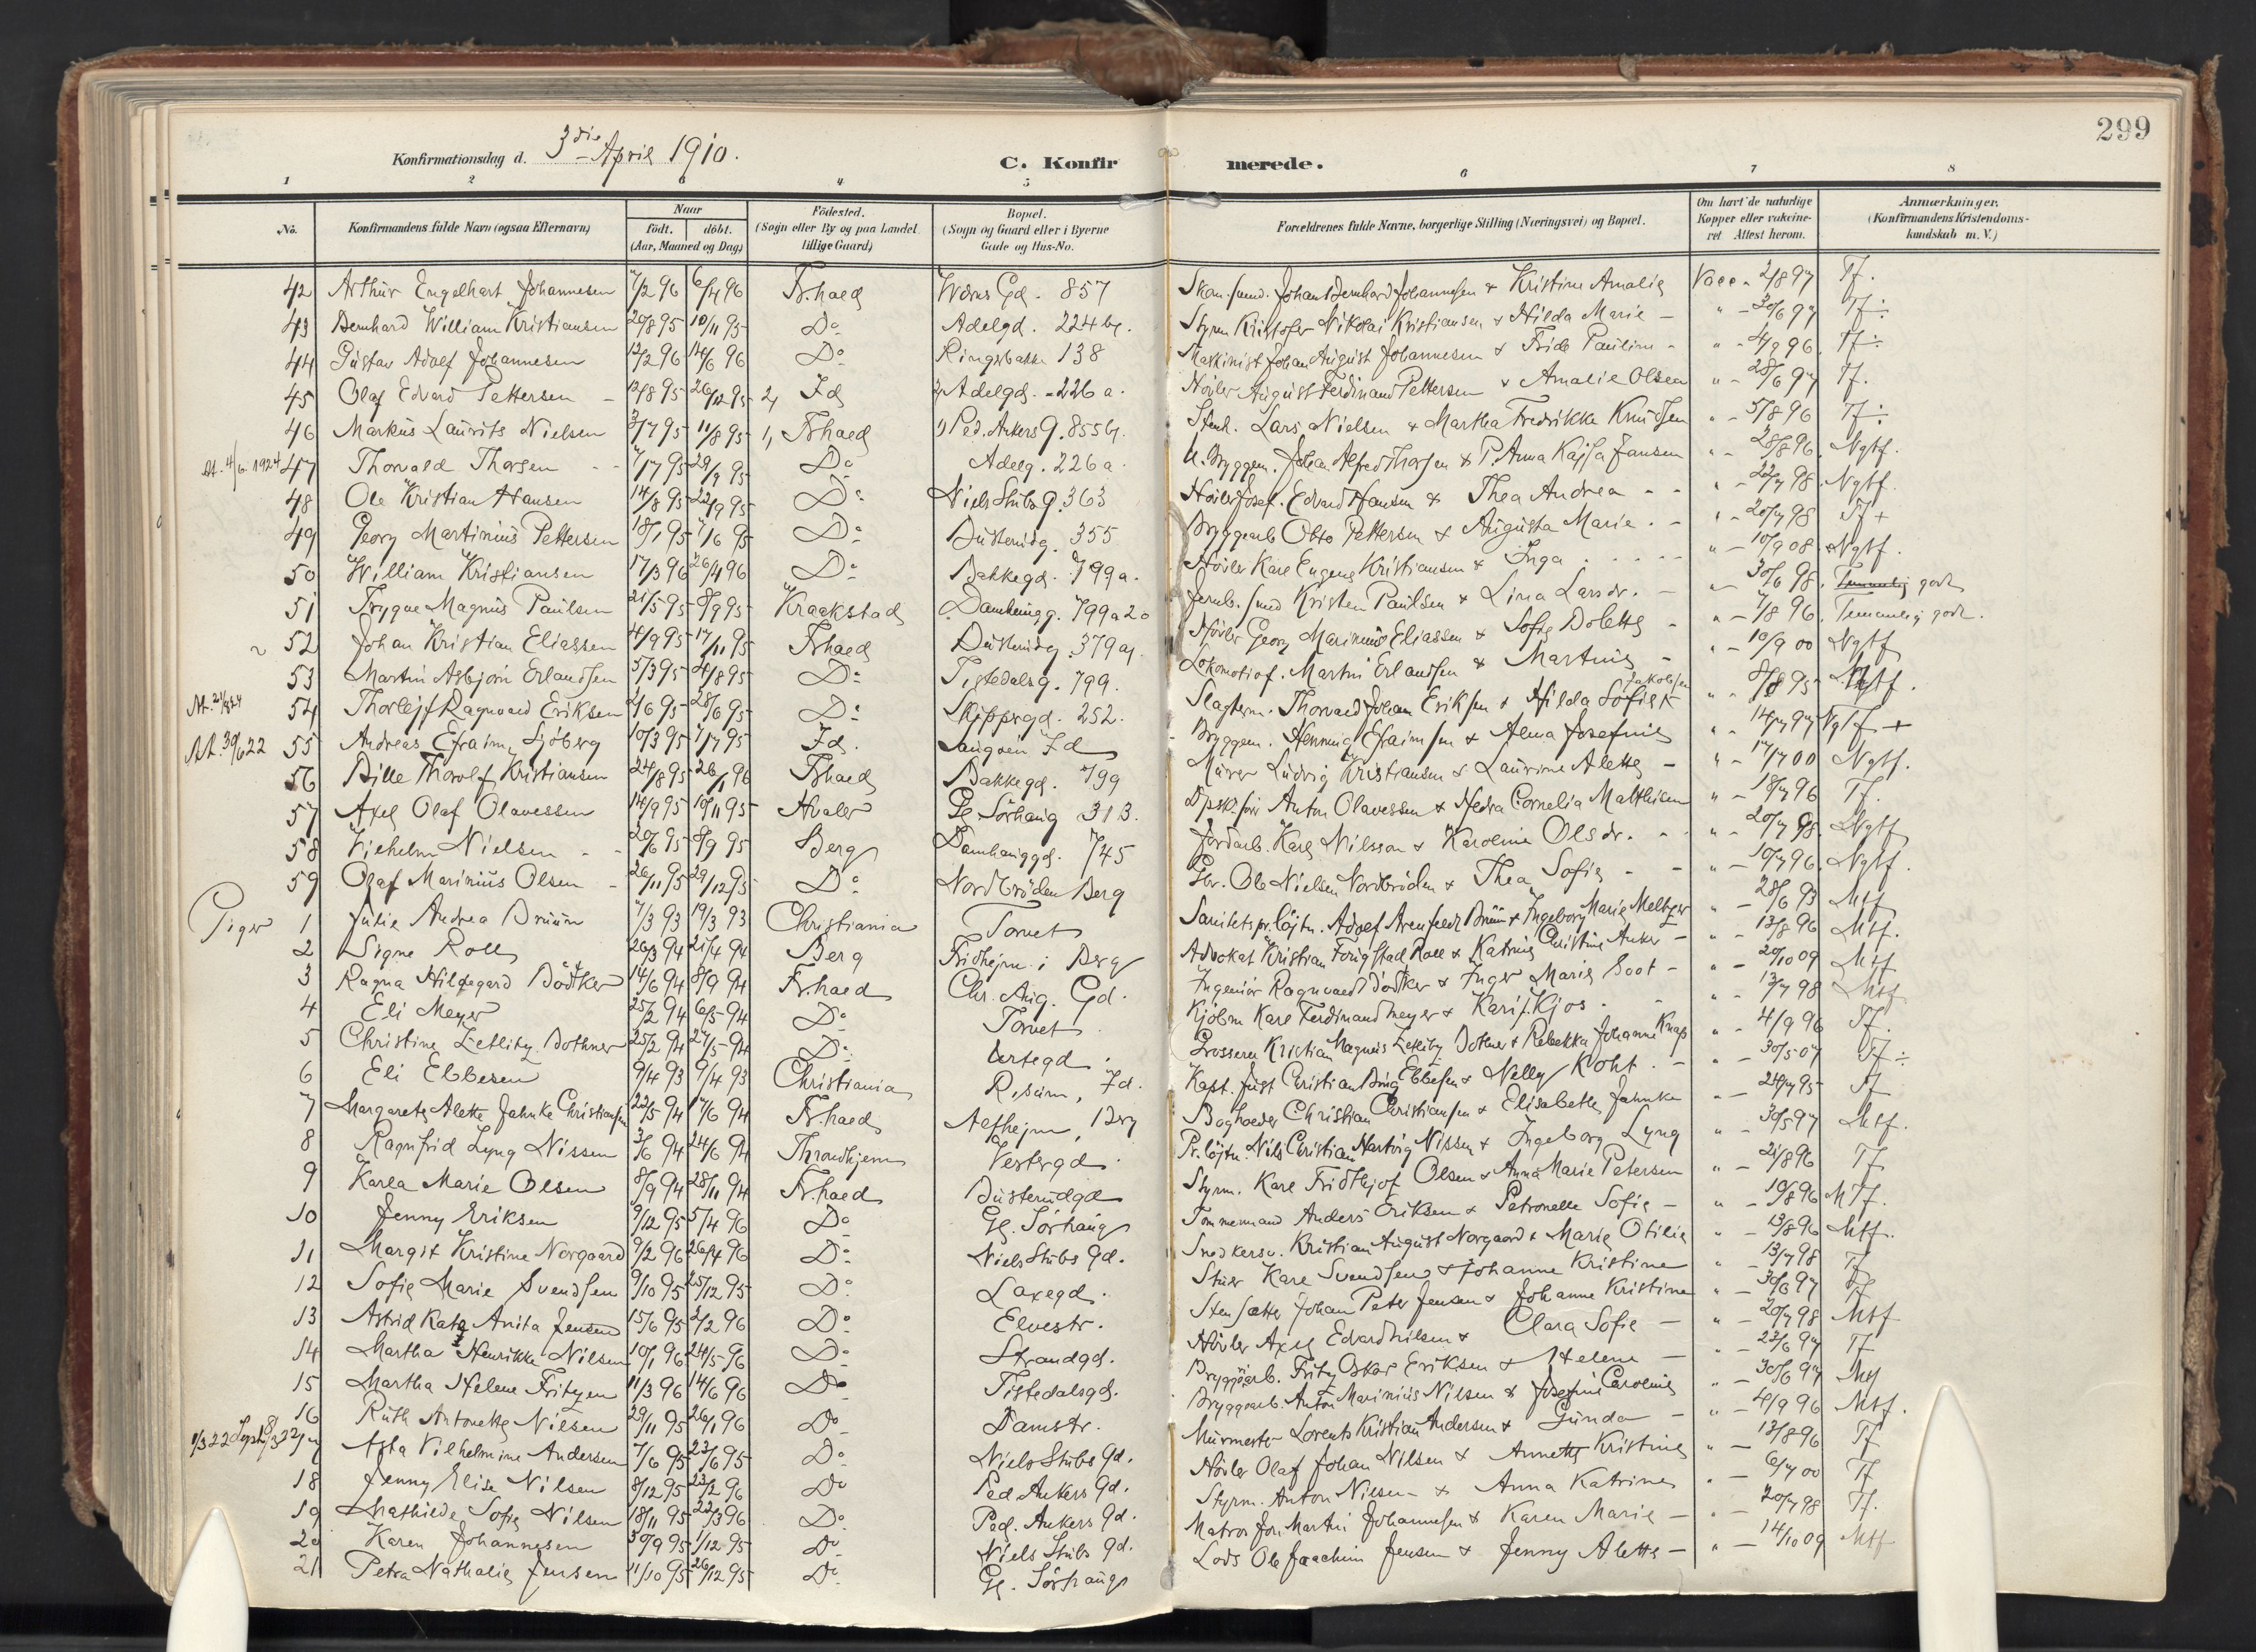 299
Konfirmationsdag d. 3die April 1910.
C. Konfirmerede.
1 2 3 4 5 6 7 8
No. Konfirmandens fulde Navn (ogsaa Efternavn) Naar født. døbt. (Aar, Maaned og Dag) Födested. (Sogn eller By og paa Landet tillige Gaard) Bopæl. (Sogn og Gaard eller i Byerne Gade og Hus-No. Forældrenes fulde Navne, borgerlige Stilling (Næringsvei) og Bopæl. Om havt de naturlige Kopper eller vakcineret Attest herom. Anmærkninger. (Konfirmandens Kristendomskundskab m. V.)
42 Arthur Engelhart Johannesen 7/2 96 6/4 96 Fr.hald Værns Gd. 857 Johan Bernhard Johannesen & Kristine Amalie Vacc. 2/8 97 Tf.
43 Bernhard William Kristiansen 20/8 95 10/11 95 Do Adelgd. 224 b. Styrm. Kristofer Nikolai Kristiansen & Hilda Marie - " - 30/6 97 Tf÷
44 Gustav Adolf Johannesen 12/2 96 14/6 96 Do Ringsbakke 138 Maskinist Johan August Johannesen & Frida Pauline - " - 4/9 96. Tf÷
45 Olaf Edvard Pettersen - 12/8 95 26/12 95 2, Id 2, Adelgd. - 226 a. Høvler August Ferdinand Pettersen & Amalie Olsen " - 28/6 97 Tf.
46 Markus Laurits Nielsen 3/7 95 11/8 95 1, Frhald 1) Ped. Ankers g. 855 b. Lars Nielsen & Martha Fredrikke Knudsen " - 5/8 96 Tf÷
At. 4/6 1924 47 Thorvald Thorsen 7/7 95 29/9 95 Do Adelg. 226 a. Johan Alfred Thorsen & P. Anna Kajsa Jansen " - 28/8 96. Ngtf.
48 Ole Kristian Hansen 14/8 95 22/9 95 Do Niels Stubs g. 363 Høvler Josef. Edvard Hansen & Thea Andrea - - " - 22/7 98. Ngtf.
49 Georg Martinius Pettersen 18/1 95 7/6 95 Do Busterudg. 355 Bryggearb Otto Pettersen & Augusta Marie. - " - 20/7 98 Tf+
50 William Kristiansen 17/3 96 26/4 96 Do Bakkegd. 799 a. Høvler Karl Eugene Kristiansen & Inga " - 10/9 08 Ngtf.
51 Trygve Magnus Paulsen 21/5 95 8/9 95 Kraakstad Damhaugg. 799 a 20 Jernb. smed Kristen Paulsen & Lina Larsdr. - " - 30/6 98. godt
52 Johan Kristian Eliassen 4/9 95 17/11 95 Frhald Busterudg. 379 a. Høvler Georg Marinius Eliassen & Sofie Dolette - " - 7/8 96. Temmelig godt.
53 Martin Asbjørn Erlandsen 5/3 95 4/8 95 Do Tistedalsg. 799. Lokomotivf. Martin Erlandsen & Martine - " - 10/9 00 Ngtf
54 Thorleif Ragnvald Eriksen 4/6 95 28/6 95 Do Skippergd. 252. Slagterm. Thorvald Johan Eriksen & Hilda Sofie Jakobsen " - 8/8 95 Ngtf.
At. 30/6 22 55 Andreas Efraim Sjöberg 10/3 95 7/7 95 Id. Langøen Id Bryggem. Henning Efraimsen & Alma Josefine " - 14/7 97 Ngtf +
56 Bille Thorolf Kristiansen 24/8 95 26/1 96 Frhald Bakkegd. 799 Murer Ludvig Kristiansen & Laurine Alette - " - 17/7 00 Ngtf.
57 Axel Olaf Olavessen 14/9 95 10/11 95 Hvaler Gl. Sörhaug 313. Anton Olavessen & Hedra Cornelia Mathisen " - 18/7 96 Tf.
58 Vilhelm Nielsen - - 20/6 95 8/9 95 Berg Damhauggd. 745 Jordarb. Karl Nilsson & Karoline Olsdr. - " - 20/7 98. Ngtf
59 Olaf Marinius Olsen - 26/11 95 29/12 95 Do Nordbröden Berg Gbr. Ole Nielsen Nordbröden & Thea Sofie - - " - 10/7 96. Ngtf.
Piger 1 Julie Andrea Bruun 7/3 93 19/3 93 Christiania Torvet Sanitetspr.löjtn. Adolf Arenfeldt Bruun & Ingeborg Marie Meltzer " - 28/6 93 Mtf
2 Signe Roll 26/3 94 21/4 94 Berg Fridhejm i Berg Advokat Kristian Forigstad Roll & Katrine Christine Anker - " - 13/8 96 Mtf.
3 Ragna Hildegard Bödtker 14/6 94 8/9 94 Fr.hald Chr. Aug. Gd. Ingeniör Ragnvald Bödtker & Inger Marie Soot - " - 20/10 09 Mtf
4 Eli Meyer 25/2 94 6/5 94 Do Torvet Kjöbm Karl Ferdinand Meyer & Kari f. Kjos - " - 13/7 98 Mtf
5 Christine Zetlitz Dothner 25/2 94 27/5 94 Do Urtegd. Grosserer Kristian Magnus Zetlitz Dothner & Rebekka Johanne Knap " - 4/9 96 Tf.
6 Eli Ebbesen 9/4 93 9/4 93 Christiania Rosum, Id. Kapt. Just Christian Bing Ebbesen & Nelly Koht. - " - 30/5 07 Tf÷
7 Margarete Alette Jahnke Christiansen 22/5 94 17/6 94 Fr.hald Alfhejm, Berg Bogholder Christian Christiansen & Elisabeth Jahnke " - 24/7 95 Tf
8 Ragnfrid Lyng Nissen 3/6 94 24/6 94 Throndhjem Vestergd. Pr.löjtn. Nils Christian Hartvig Nissen & Ingeborg Lyng " - 30/5 97 Mtf.
9 Karla Marie Olsen 8/9 94 28/11 94 Fr.hald Busterudgd Styrm. Karl Fridthjof Olsen & Anna Marie Petersen " - 21/8 96 Tf
10 Jenny Eriksen 9/12 95 5/4 96 Do Gl. Sörhaug Tömmermand Anders Eriksen & Petronelle Sofie - " - 10/8 96 MTf.
11 Margit Kristine Norgaard 9/2 96 26/4 96 Do Niels Stubs Gd. Snedkersv. Kristian August Norgaard & Marie Otilie " - 13/8 96 Mtf.
12 Sofie Marie Svendsen 9/10 95 25/12 95 Do Laxegd. Stuer Karl Svendsen & Johanne Kristine " - 13/7 98 Tf
13 Astrid Kata Anita Jensen 15/6 95 2/2 96 Do Elvestr. Stensætter Johan Peter Jensen & Johanne Kristine " - 30/6 97 Tf
14 Martha Henrikke Nilsen 10/1 96 24/5 96 Do Strandgd. Høvler Axel Edvard Nilsen & Clara Sofie - " - 20/7 98 Mtf
15 Martha Helene Fritzen 11/3 96 14/6 96 Do Tistedalsgd. Bryggearb. Fritz Oskar Eriksen & Helene - " - 22/6 97 Tf
16 Ruth Antonette Nilsen 29/11 95 26/1 96 Do Damstr. Bryggearb. Anton Marinius Nilsen & Josefine Caroline " - 30/6 97 Mtf
17 Asta Vilhelmine Andersen 7/6 95 23/6 95 Do Niels Stubs Gd. Murmester Lorents Kristian Andersen & Gunda - " - 4/9 96 Mtf.
18 Jenny Elise Nilsen 8/12 95 23/2 96 Do Ped Ankers Gd. Høvler Olaf Johan Nilsen & Annette Kristine " - 13/8 96 Tf
19 Mathilde Sofie Nilsen 18/11 95 22/3 96 Do Ped. Ankers Gd. Styrm. Anton Nilsen - & Anna Katrine " - 6/7 00 Tf
20 Karen Johannesen 30/9 95 1/12 95 Do Niels Stubs Gd. Matros Jon Martin Johannesen & Karen Marie - " - 20/7 98 Tf.
21 Petra Nathalie Jensen 11/10 95 26/12 95 Do Gl. Sörhaug Lods Ole Joachim Jensen & Jenny Alette - " - 14/10 09 Mtf